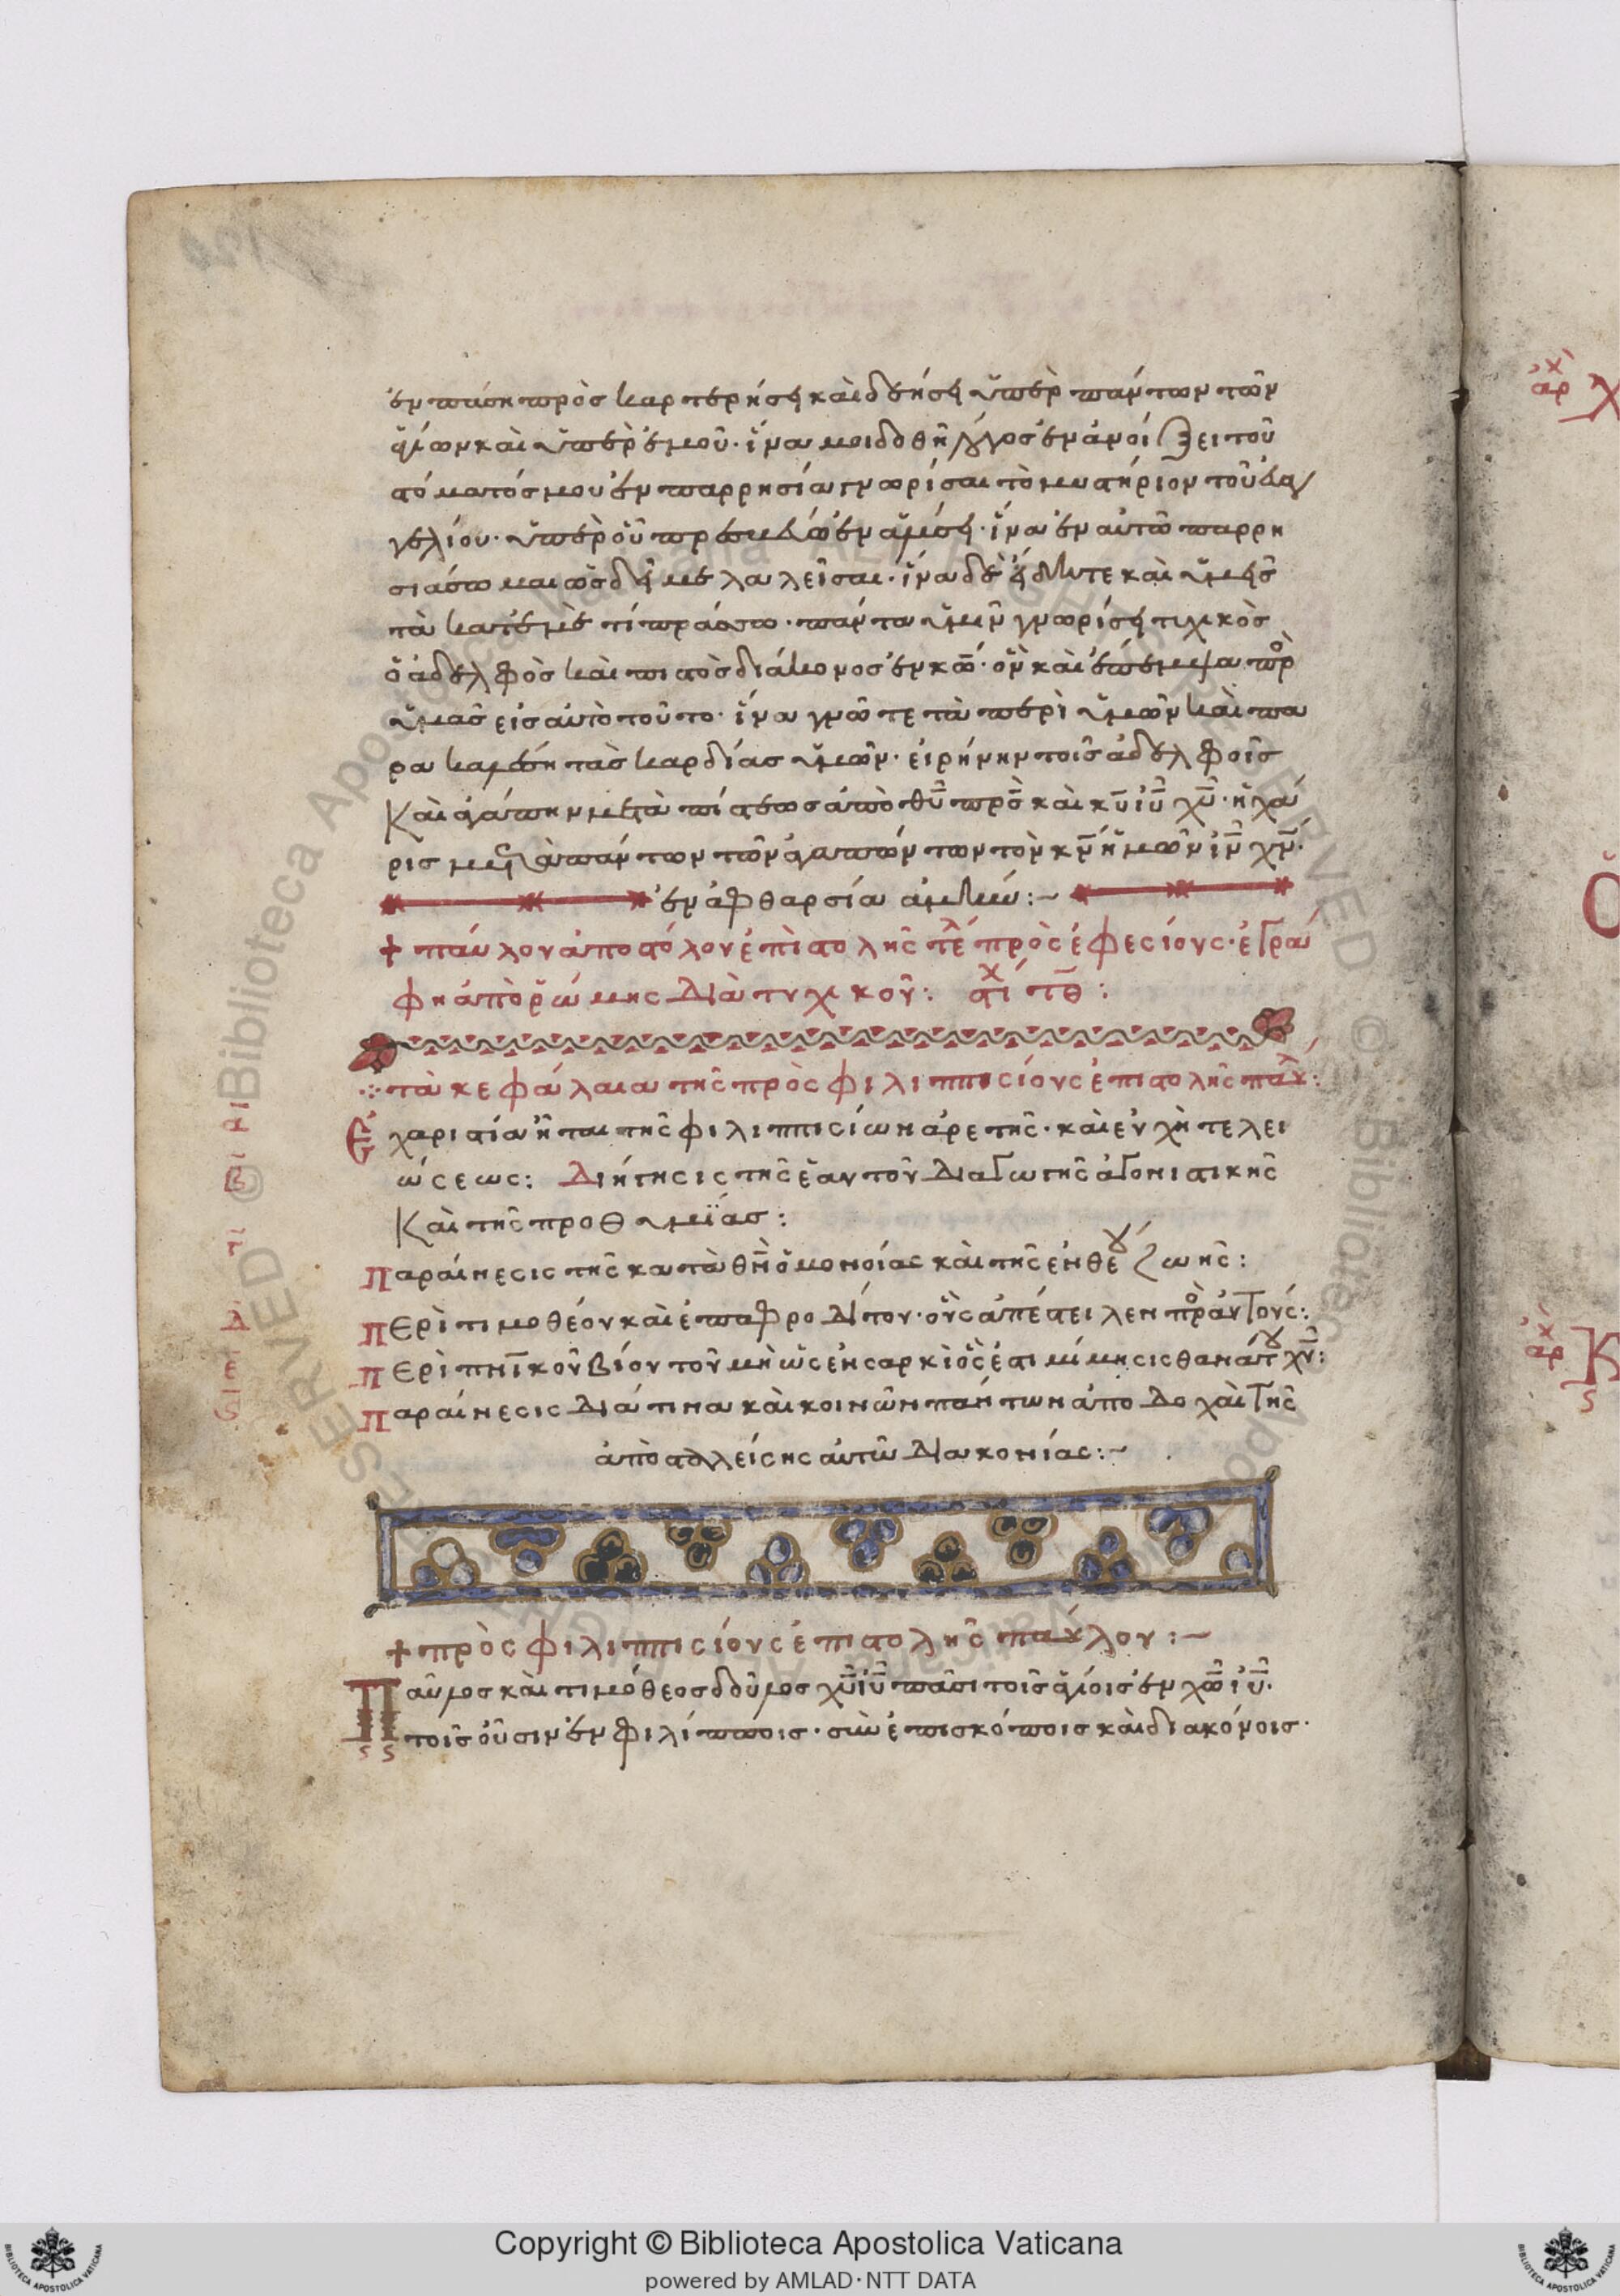 ἐν πάση προσκαρτερήσει καὶ δεήσει ὑπὲρ πάντων τῶν
ἁγίων καὶ ὑπὲρ ἐμοῦ· ἵνα μοι δοθῆ λόγος ἐν ἀνοίξει τοῦ
στόματός μου ἐν παρρησία γνωρίσαι τὸ μυστήριον τοῦ εὐαγ
γελίου· ὑπὲρ οὗ πρεσβεύω ἐν ἁλύσει· ἵνα ἐν αὐτῶ παρρη
σιάσωμαι ὡς δεῖ με λαλεῖσαι· ἵνα δὲ εἰδῆτε καὶ ὑμεῖς
τὰ κατ' ἐμὲ τί πράσσω· πάντα ὑμῖν γνωρίσει τιχικὸς
ὁ ἀδελφὸς καὶ πιστὸς διάκονος ἐν κω· ὃν καὶ ἔπεμψα πρ
ὑμᾶς εἰς αὐτὸ τοῦτο· ἵνα γνῶτε τὰ περὶ ὑμῶν καὶ πα
ρακαλέση τὰς καρδίας ὑμῶν· εἰρήνην τοῖς ἀδελφοῖς
καὶ ἀγάπην μετὰ πίστεως ἀπὸ θυ πρς καὶ κυ ιυ χυ· ἡ χά
ρις μετὰ πάντων τῶν ἀγαπώντων τὸν κν ἡμῶν ιν χν·
ἐν ἀφθαρσία ἀμήν:~
+ παύλου ἀποστόλου ἐπιστολῆς τέλ πρὸς ἐφεσίους· ἐγρά
φη ἀπὸ ῥώμης διὰ τυχικοῦ: στίχ τιθ:
τὰ κεφάλαια τῆς πρὸς φιλιππισίους ἐπιστολῆς παύλ:
χαριστία ἧται τῆς φιλιππισίων ἀρετῆς· καὶ εὐχὴ τελει
ώσεως: Διήγησις τῆς ἑαυτοῦ διαγωγῆς ἀγονιστικῆς
καὶ τῆς προθυμίας:
Παραίνεσις τῆς κατὰ θν ὁμονοίας καὶ τῆς ἐνθέου ζωῆς:
Περὶ τιμοθέου καὶ ἐπαφροδίτου· οὓς ἀπέστειλεν πρ αὐτούς:
Περὶ πνικοῦ βίου τοῦ μὴ ὡς ἐν σαρκὶ ὅς ἐστι μίμησις θανάτου χυ:
Παραίνεσις διά τινα καὶ κοινῶν πάντων ἀποδοχὰὶ τῆς
ἀποσταλλείσης αὐτῶ διακονίας:~
+ πρὸς φιλιππισίους ἐπιστολῆς παύλου:~
Παῦλος καὶ τιμόθεος δοῦλος χυ ιυ πᾶσι τοῖς ἁγίοις ἐν χω ιυ·
τοῖς οὖσιν ἐν φιλίπποις· σὺν ἐπισκόποις καὶ διακόνοις·
Copyright © Biblioteca Apostolica Vaticana
powered by AMLAD·NTT DATA